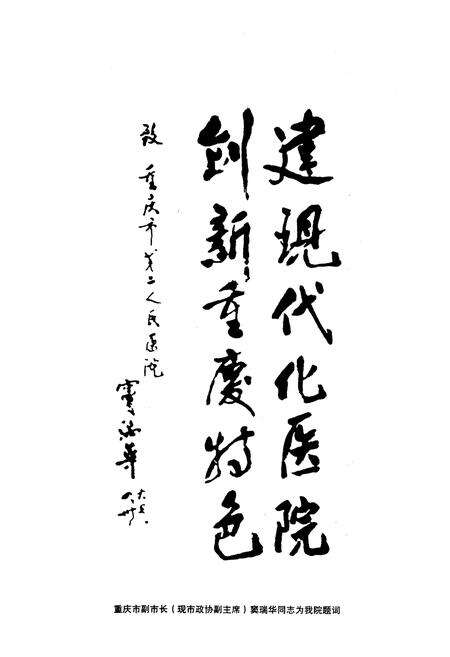 建現代化医院
創新重慶特色
致 重庆市第二人民医院
竇瑞華
重庆市副市长（现市政协副主席）窦瑞华同志为我院题词